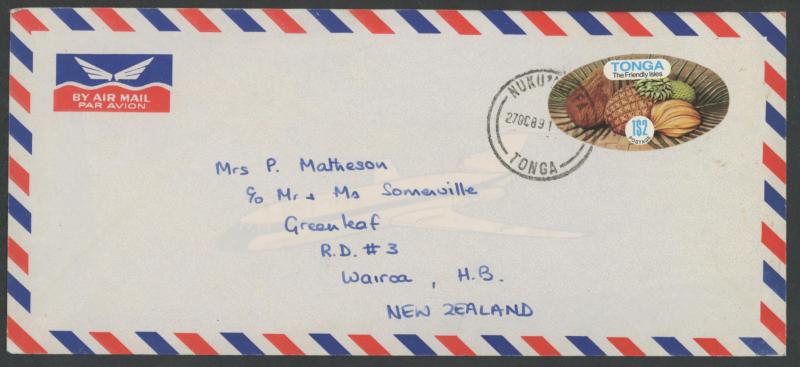 BY AIR MAIL
PAR AVION
TONGA
The Friendly Isles
T$2
POSTAGE
TONGA
Mrs P. Matheson
c/o Mr + Ms Somerville
Greenleaf
R.D. # 3
Wairoa, H.B.
NEW ZEALAND